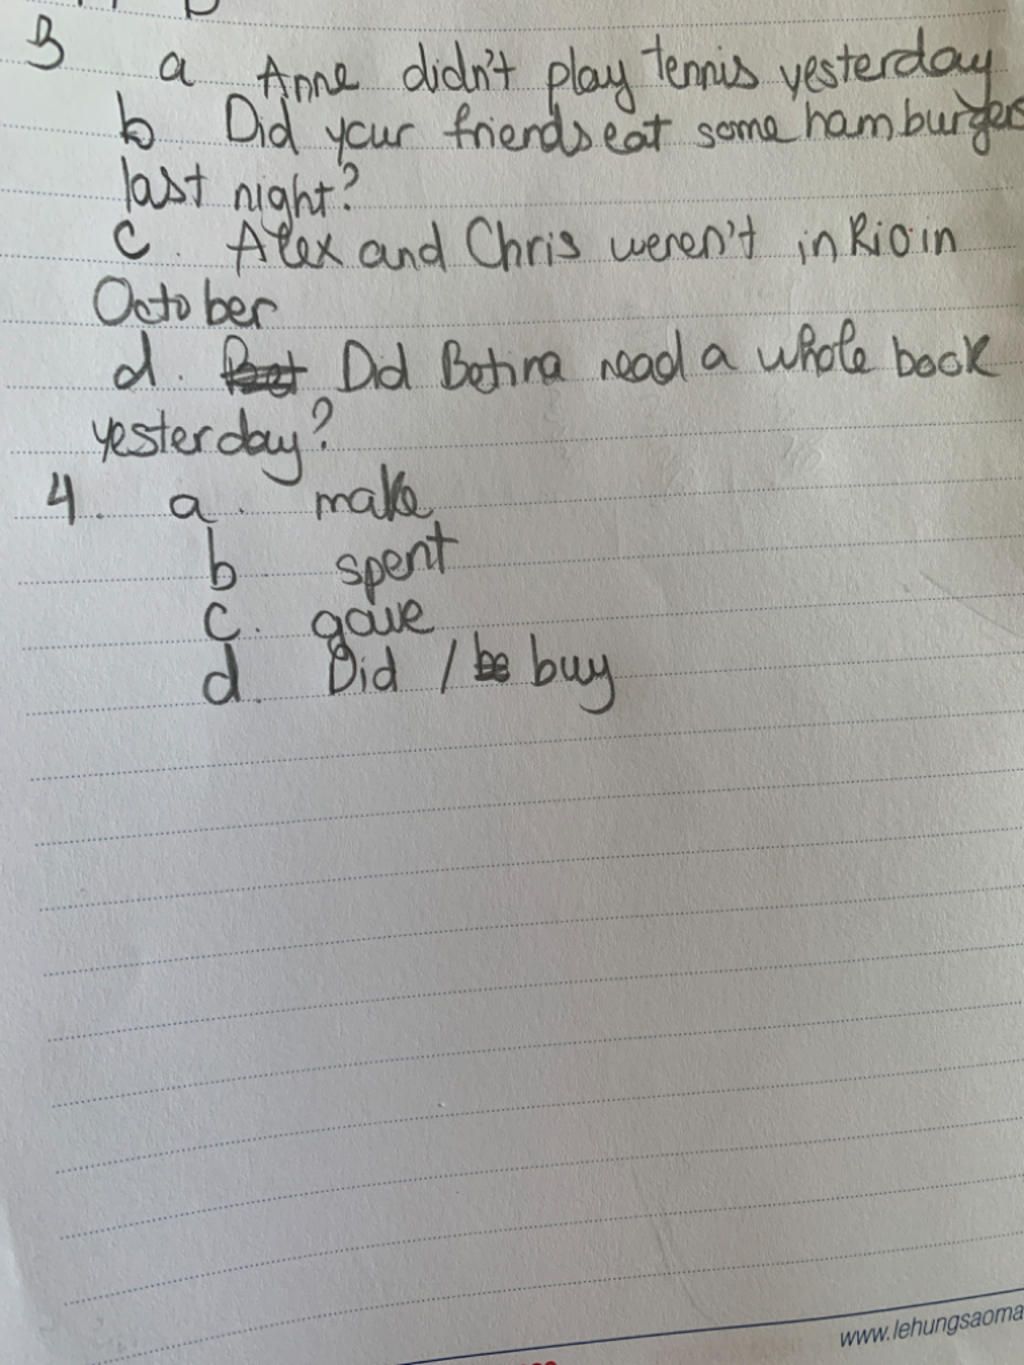 3 a Anne didn't play tennis yesterday
b Did your friends eat some hamburgers
last night?
c. Alex and Chris weren't in Rio in
October
d. Did Betina read a whole book
yesterday?
4. a. make
b spent
c. gave
d. Did / buy
www.lehungsaoma